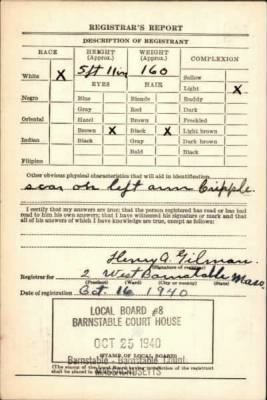 REGISTRAR'S REPORT
DESCRIPTION OF REGISTRANT
RACE HEIGHT (Approx.) WEIGHT (Approx.) COMPLEXION
White X 5 ft 11 in 160 Sallow
EYES HAIR Light X
Negro Blue Blonde Ruddy
Gray Red Dark
Oriental Hazel Brown Freckled
Brown X Black X Light brown
Indian Black Gray Dark brown
Bald Black
Filipino
Other obvious physical characteristics that will aid in identification
scar on left arm Cripple
I certify that my answers are true; that the person registered has read or has had
read to him his own answers; that I have witnessed his signature or mark and that
all of his answers of which I have knowledge are true, except as follows:
Henry A. Gilman
(Signature of registrar)
Registrar for 2 West Barnstable Mass.
(Precinct) (Ward) (City or county) (State)
Date of registration Oct. 16 1940
LOCAL BOARD #8
BARNSTABLE COURT HOUSE
OCT 25 1940
Barnstable - Barnstable County
(STAMP OF LOCAL BOARD)
MASSACHUSETTS
(The stamp of the Local Board having jurisdiction of the registrant
shall be placed in